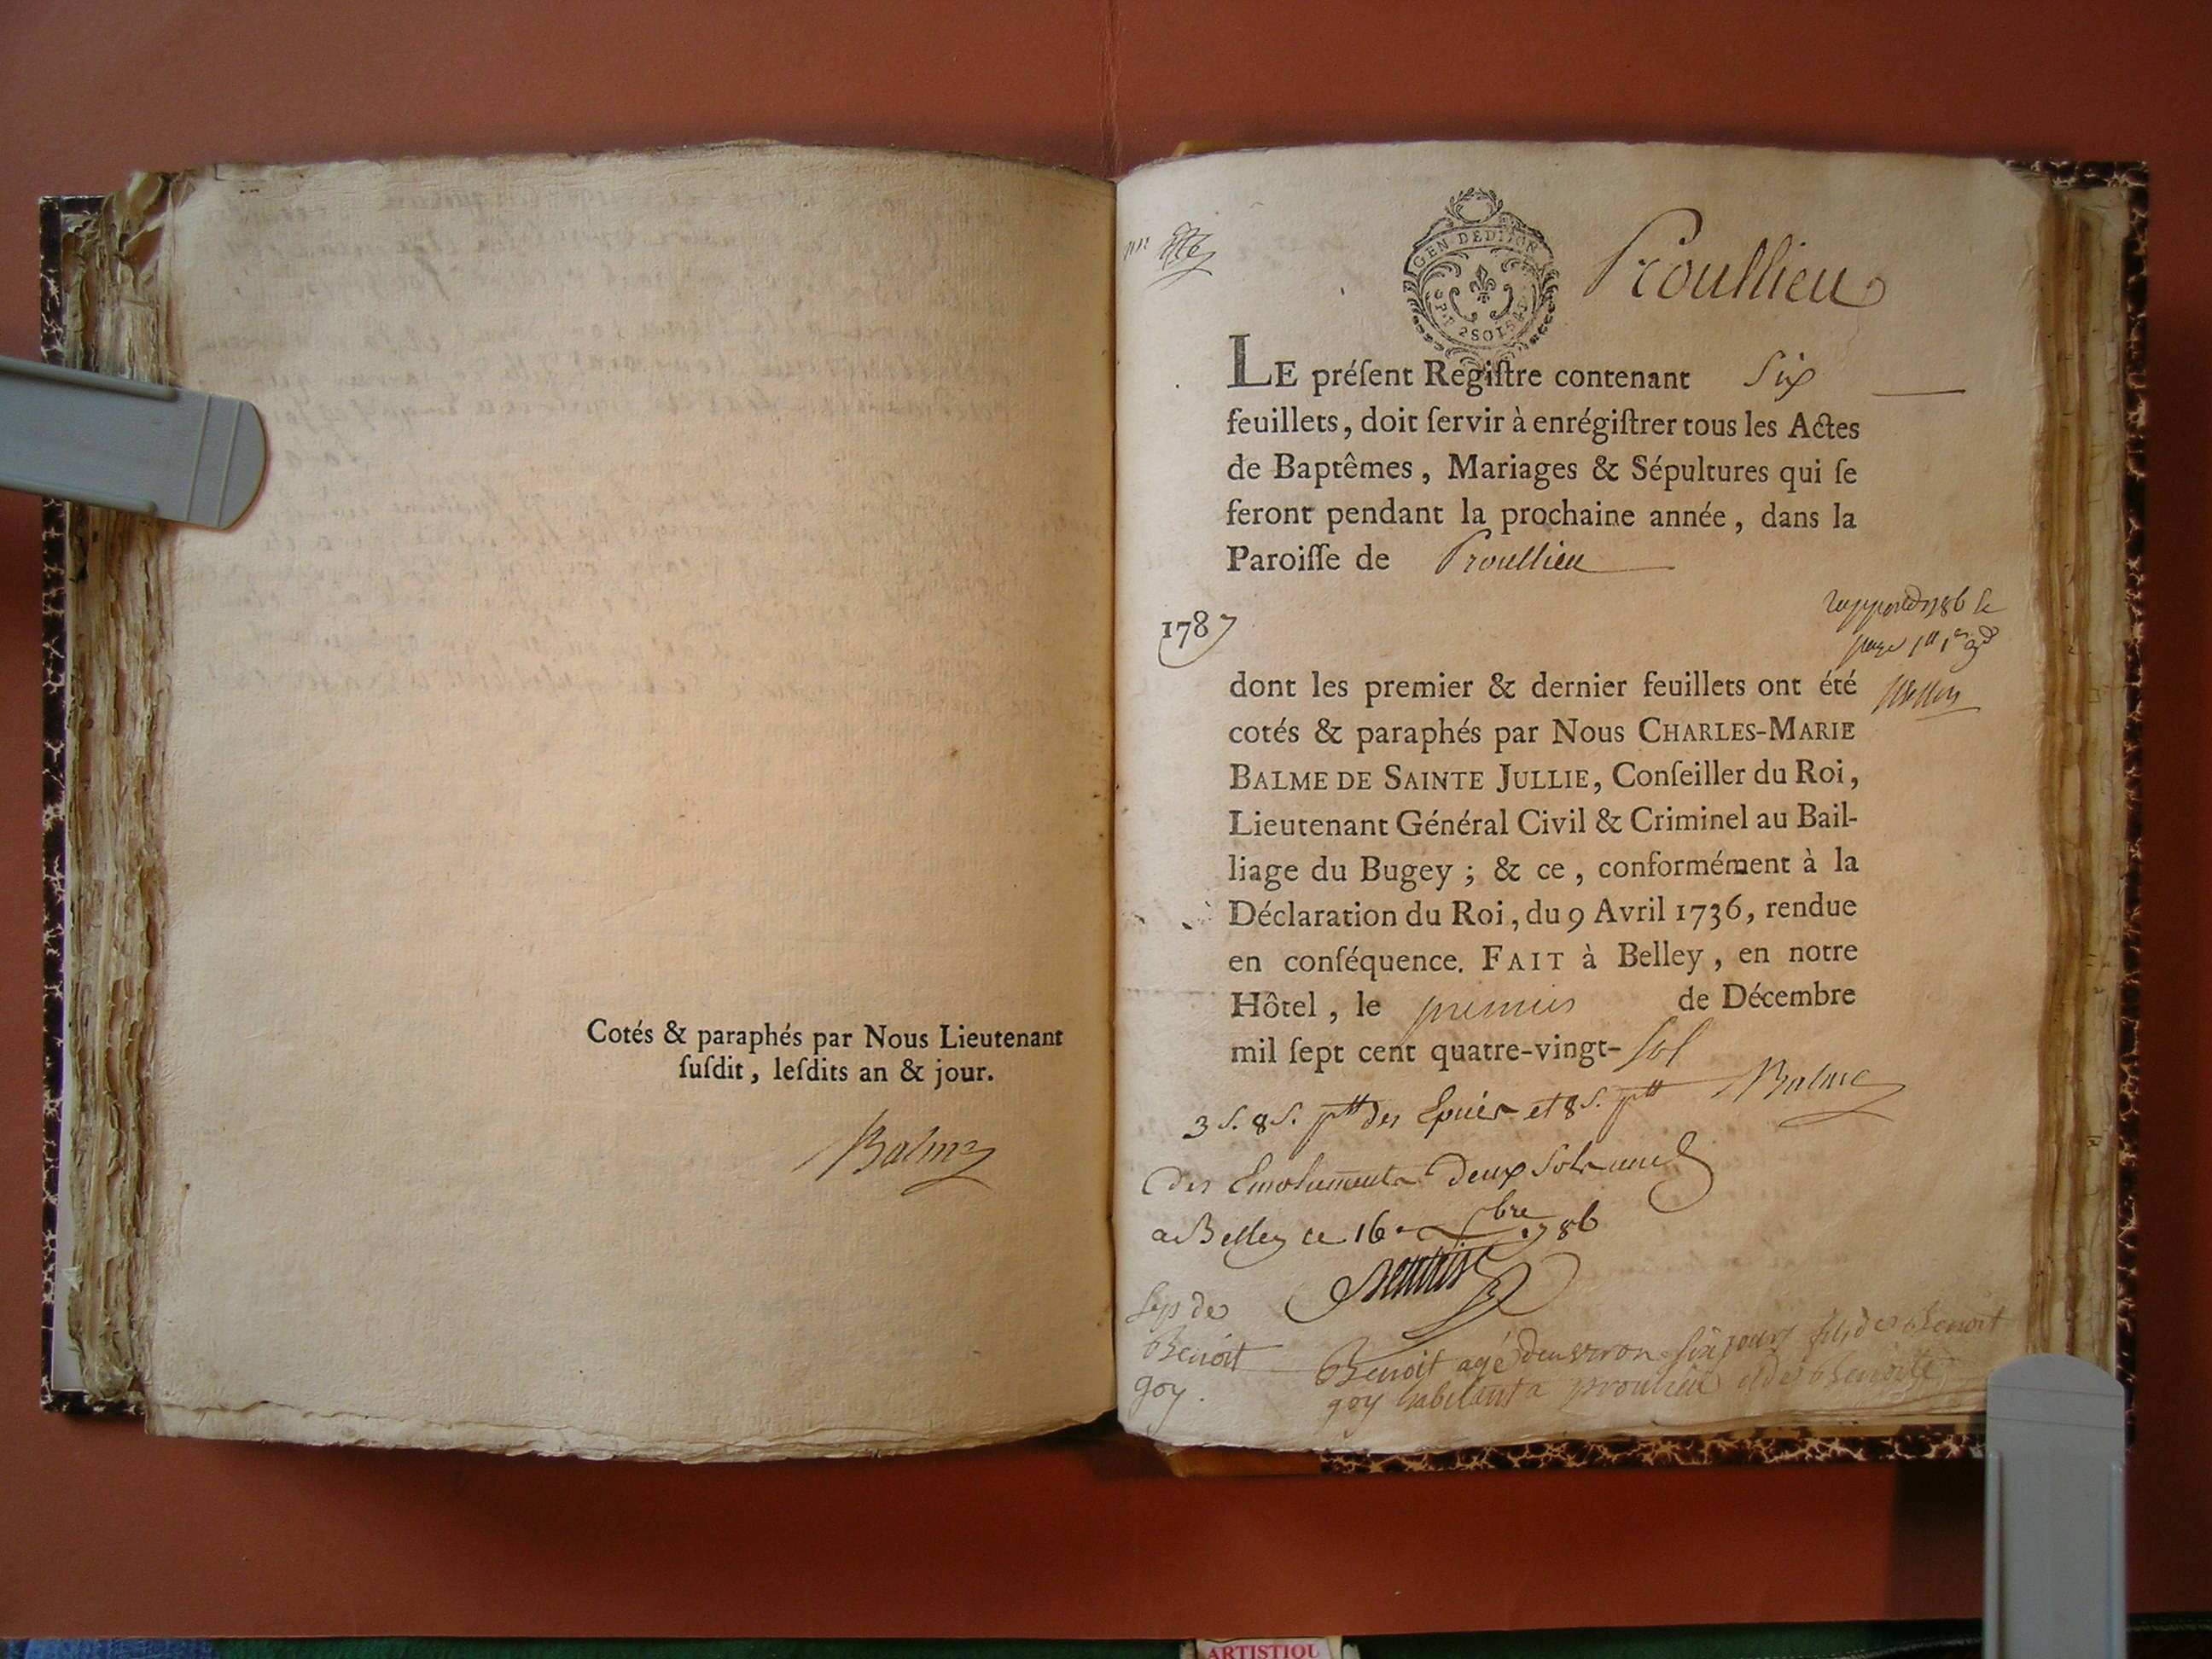 Cotés & paraphés par Nous Lieutenant
ſuſdit, leſdits an & jour.
Balme
GEN DE DIJON
2 SOLS
Proullieu
LE préſent Regiſtre contenant Six
feuillets, doit ſervir à enrégiſtrer tous les Actes
de Baptêmes, Mariages & Sépultures qui ſe
feront pendant la prochaine année, dans la
Paroiſſe de Proullieu
1787
dont les premier & dernier feuillets ont été
cotés & paraphés par Nous CHARLES-MARIE
BALME DE SAINTE JULLIE, Conſeiller du Roi,
Lieutenant Général Civil & Criminel au Bail-
liage du Bugey ; & ce, conformément à la
Déclaration du Roi, du 9 Avril 1736, rendue
en conſéquence. FAIT à Belley, en notre
Hôtel, le premier de Décembre
mil ſept cent quatre-vingt-
Balme
3 s. 8 s. des Epices et 8 s.
des Emoluments deux sols
a Belley ce 16 bre 1786
Sep de
Benoit
goy.
Benoit agé denviron six jours fils de Benoit
goy habitant a proulieu et de Benoite
ARTISTIQU